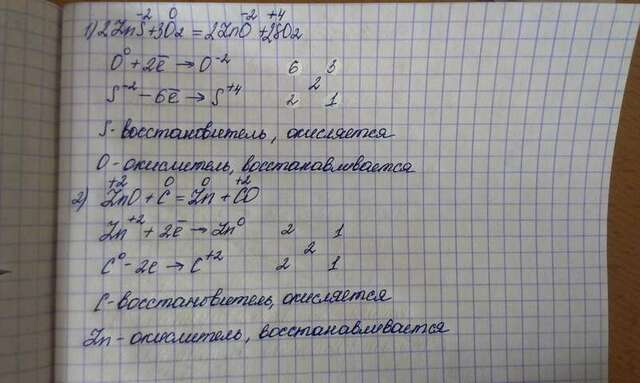 -2 0 -2 +4
1) 2ZnS+3O₂ = 2ZnO +2SO₂
O⁰ + 2ē → O⁻² 6 3
2
S⁻² - 6ē → S⁺⁴ 2 1
S-восстановитель, окисляется
O-окислитель, восстанавливается
+2 0 0 +2
2) ZnO + C = Zn + CO
Zn⁺² + 2ē → Zn⁰ 2 1
2
C⁰ - 2e → C⁺² 2 1
C-восстановитель, окисляется
Zn-окислитель, восстанавливается